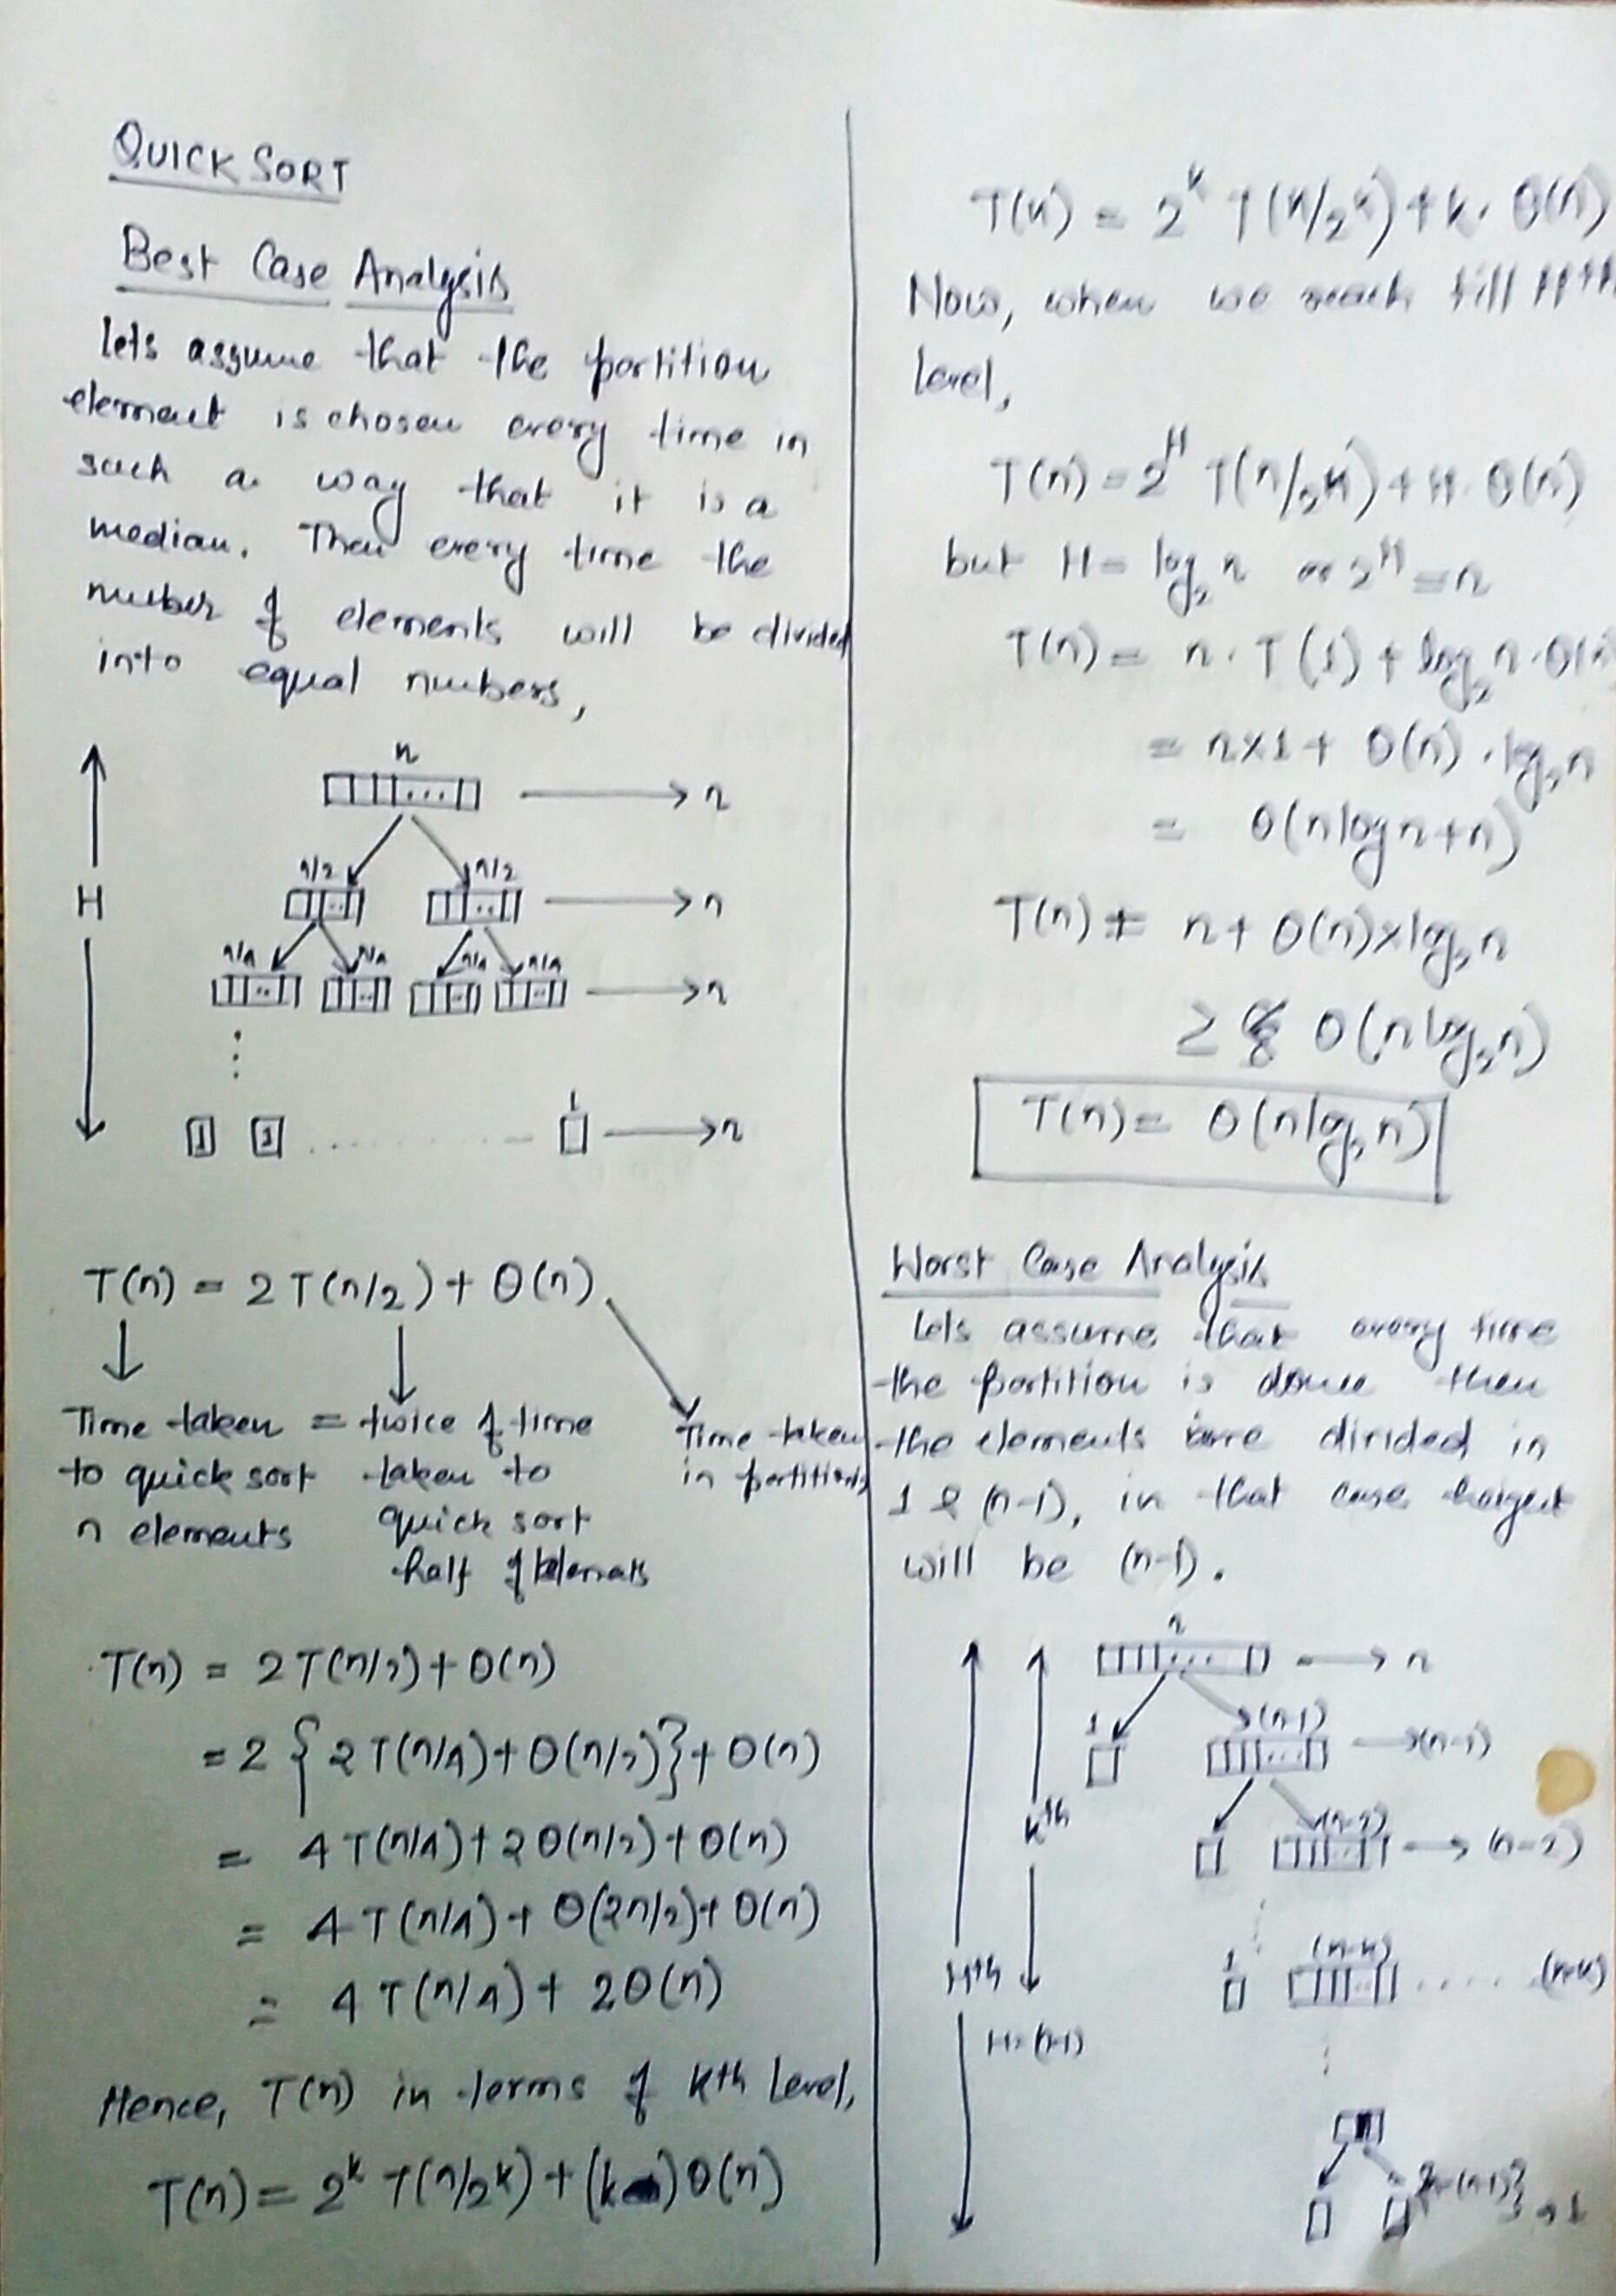 QUICK SORT
Best Case Analysis
lets assume that the partition
element is chosen every time in
such a way that it is a
median. Then every time the
number of elements will be divided
into equal numbers,
n
→ n
n/2 n/2
H → n
n/4 n/4 n/4 n/4
→ n
⋮
1 1 ........ 1 → n
T(n) = 2T(n/2) + θ(n)
Time taken = twice of time Time taken
to quick sort taken to in partitions
n elements quick sort
half of elements
T(n) = 2T(n/2) + θ(n)
= 2 { 2T(n/4) + θ(n/2)} + θ(n)
= 4T(n/4) + 2θ(n/2) + θ(n)
= 4T(n/4) + θ(2n/2) + θ(n)
= 4T(n/4) + 2θ(n)
Hence, T(n) in terms of kth level,
T(n) = 2^k T(n/2^k) + (k) θ(n)
T(n) = 2^k T(n/2^k) + k. θ(n)
Now, when we reach till Hth
level,
T(n) = 2^H T(n/2^H) + H. θ(n)
but H = log₂n or 2^H = n
T(n) = n. T(1) + log₂n. θ(n)
= n×1 + θ(n) . log₂n
= θ(nlogn+n)
T(n) = n + θ(n)×log₂n
≥ θ(nlog₂n)
T(n) = θ(nlog₂n)
Worst Case Analysis
Lets assume that every time
the partition is done then
the elements are divided in
1 & (n-1), in that case heigut
will be (n-1).
n
→ n
1 (n-1)
→ (n-1)
kth (n-2)
→ (n-2)
1 (n-k)
Hth .... (n-k)
H=(n-1)
⋮